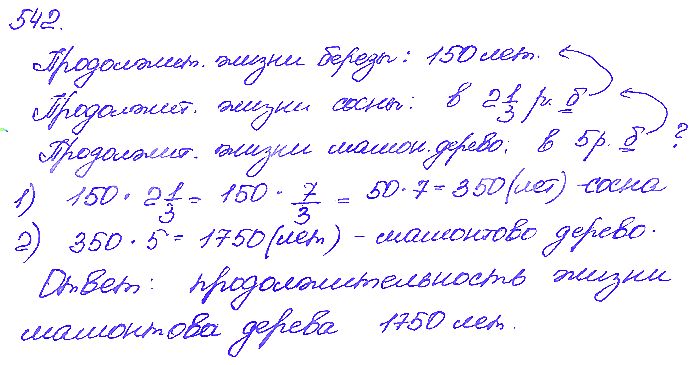 542.
Продолжит. жизни березы: 150 лет.
Продолжит. жизни сосны: в 2 1/3 р. б
Продолжит. жизни мамон. дерево: в 5 р. б ?
1) 150 · 2 1/3 = 150 · 7/3 = 50 · 7 = 350 (лет) - сосна
2) 350 · 5 = 1750 (лет) - мамонтово дерево.
Ответ: продолжительность жизни
мамонтова дерева 1750 лет.